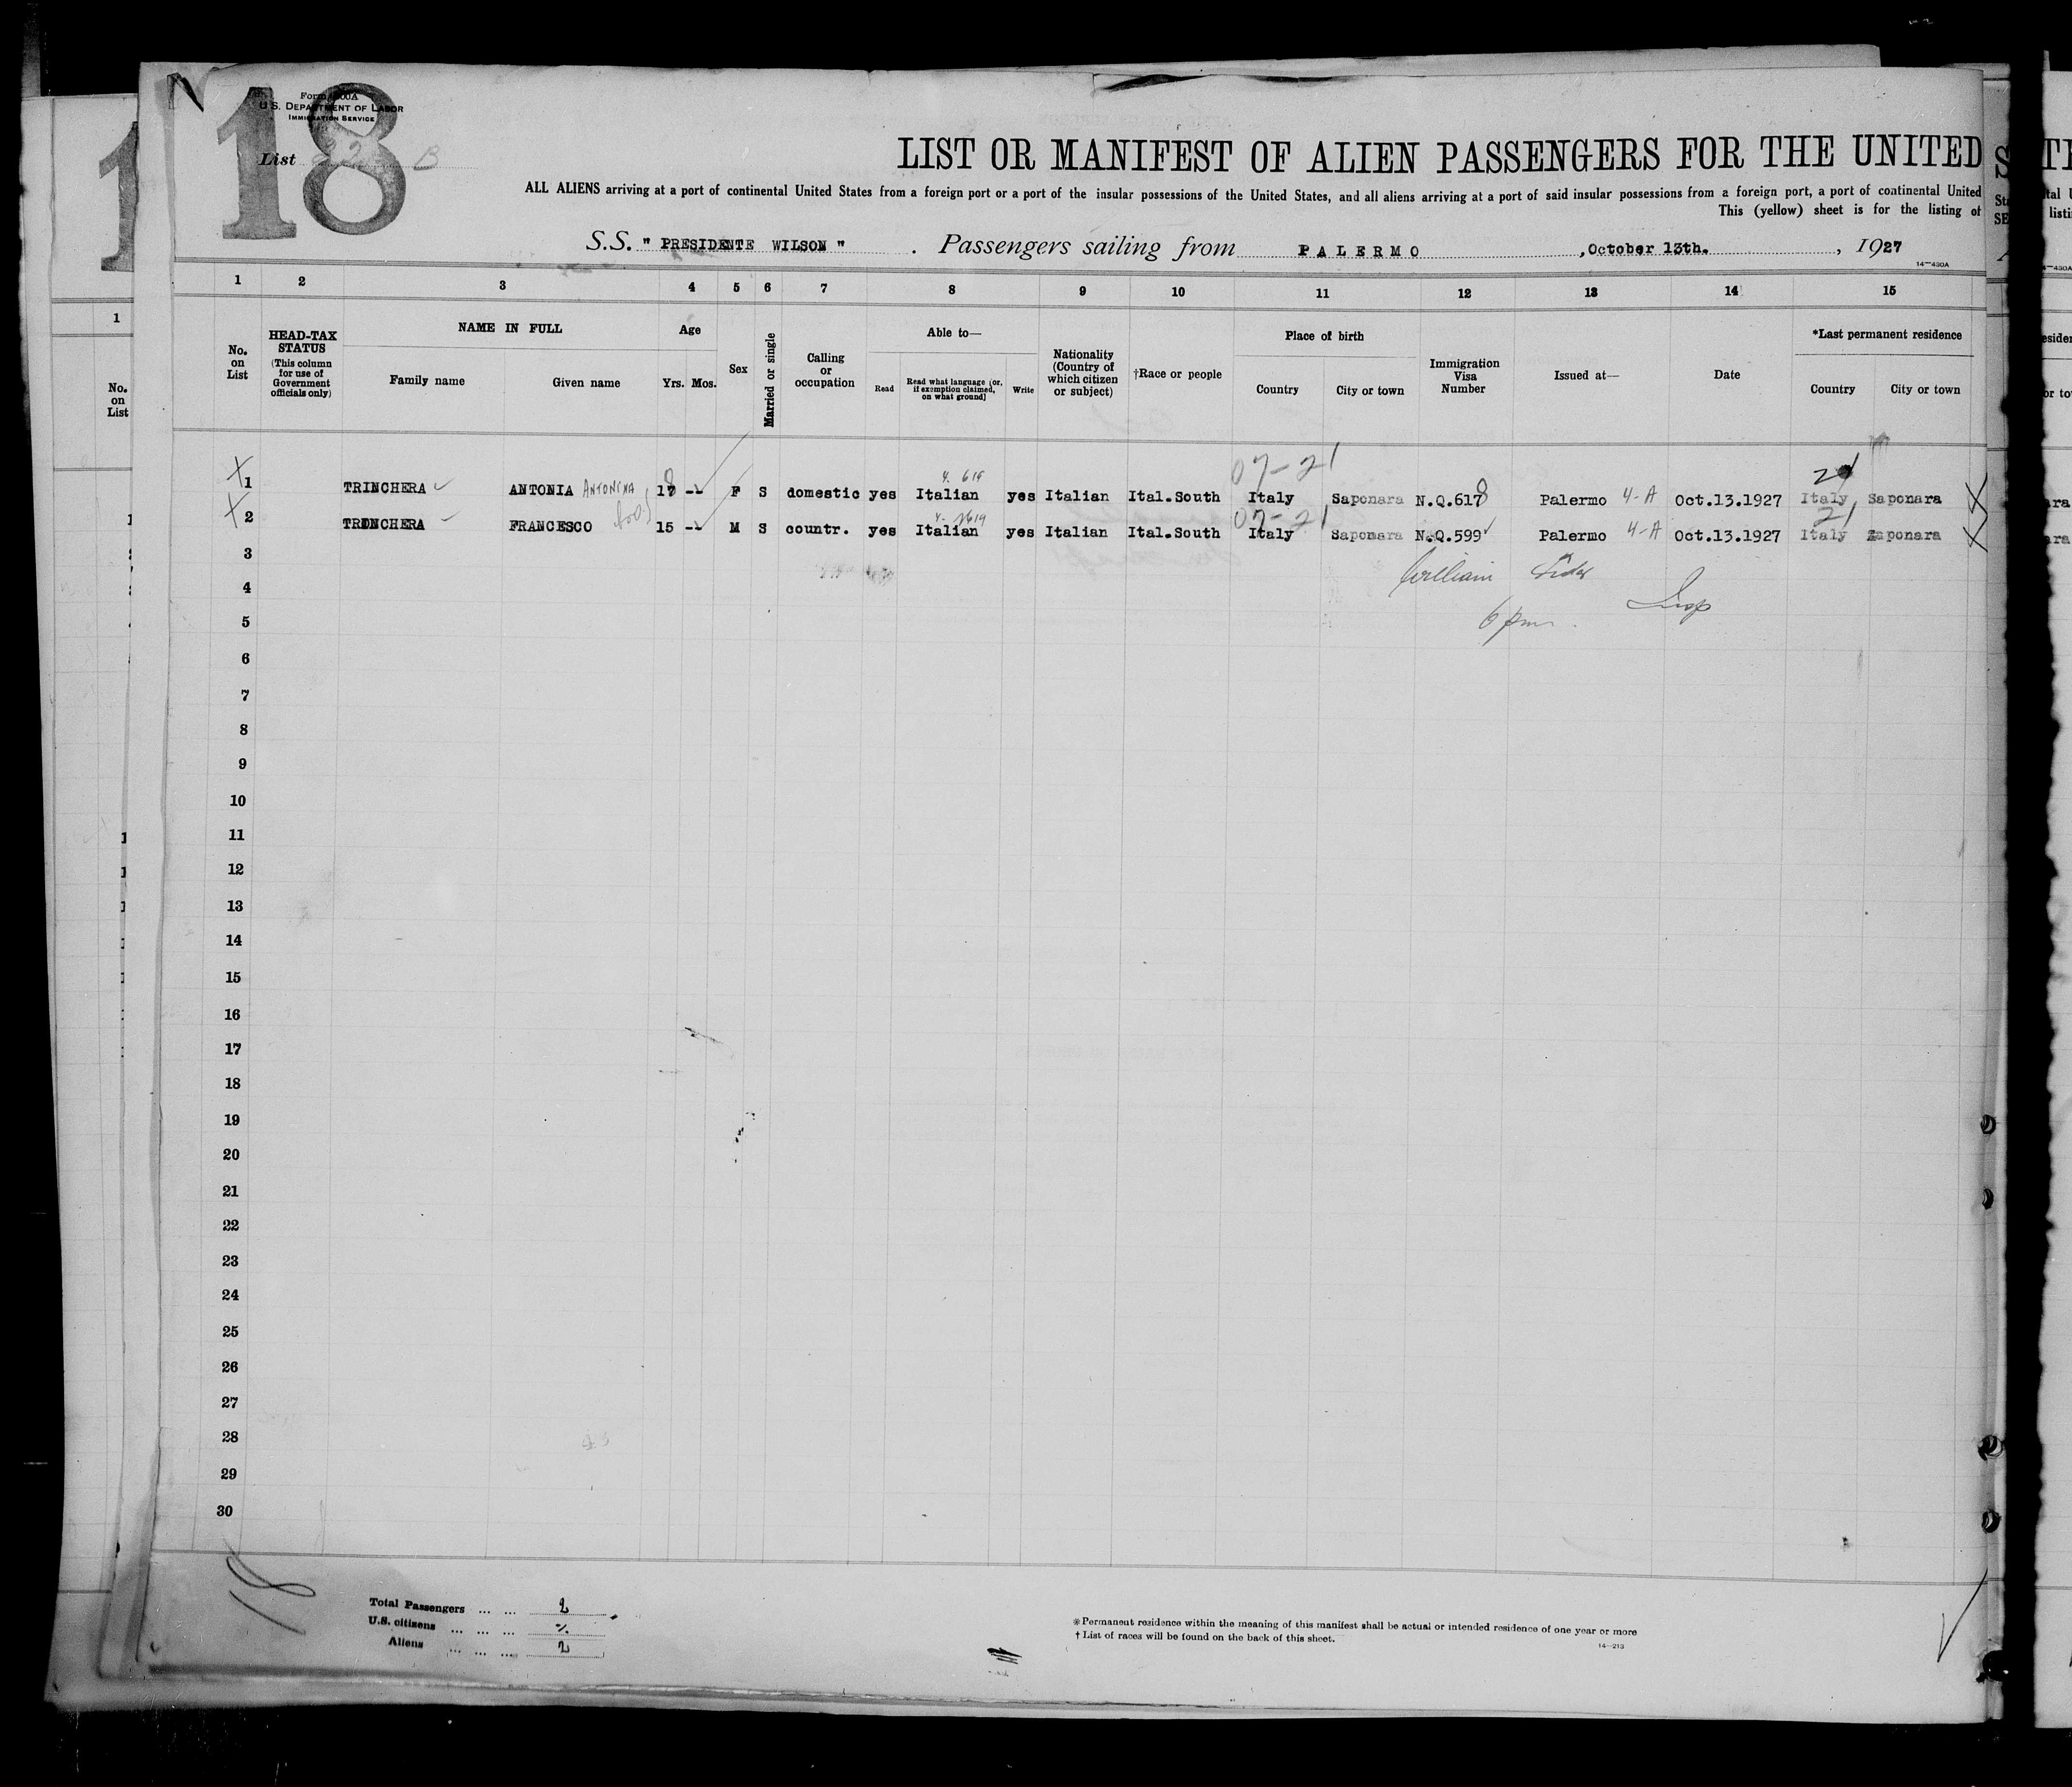 18
Form 500A
U.S. DEPARTMENT OF LABOR
IMMIGRATION SERVICE
List 22 B
LIST OR MANIFEST OF ALIEN PASSENGERS FOR THE UNITED
ALL ALIENS arriving at a port of continental United States from a foreign port or a port of the insular possessions of the United States, and all aliens arriving at a port of said insular possessions from a foreign port, a port of continental United
This (yellow) sheet is for the listing of
S.S. " PRESIDENTE WILSON " . Passengers sailing from PALERMO , October 13th. , 1927
14—430A
1 2 3 4 5 6 7 8 9 10 11 12 13 14 15
No. on List
HEAD-TAX STATUS (This column for use of Government officials only)
NAME IN FULL
Family name Given name
Age
Yrs. Mos.
Sex
Married or single
Calling or occupation
Able to—
Read Read what language [or, if exemption claimed, on what ground] Write
Nationality (Country of which citizen or subject)
†Race or people
Place of birth
Country City or town
Immigration Visa Number
Issued at—
Date
*Last permanent residence
Country City or town
4. 619 07-21 21
X 1 TRINCHERA ANTONIA ANTONINA 18 -- F S domestic yes Italian yes Italian Ital.South Italy Saponara N.Q.6178 Palermo 4-A Oct.13.1927 Italy Saponara
07-21 21
X 2 TRINCHERA FRANCESCO 15 -- M S countr. yes Italian yes Italian Ital.South Italy Saponara N.Q.599 Palermo 4-A Oct.13.1927 Italy Saponara
3
William Insp
4
6 pm
5
6
7
8
9
10
11
12
13
14
15
16
17
18
19
20
21
22
23
24
25
26
27
28
29
30
18
Total Passengers ... ... 2
U.S. citizens ... ... ... %
Aliens ... ... ... 2
*Permanent residence within the meaning of this manifest shall be actual or intended residence of one year or more
† List of races will be found on the back of this sheet.
14—213